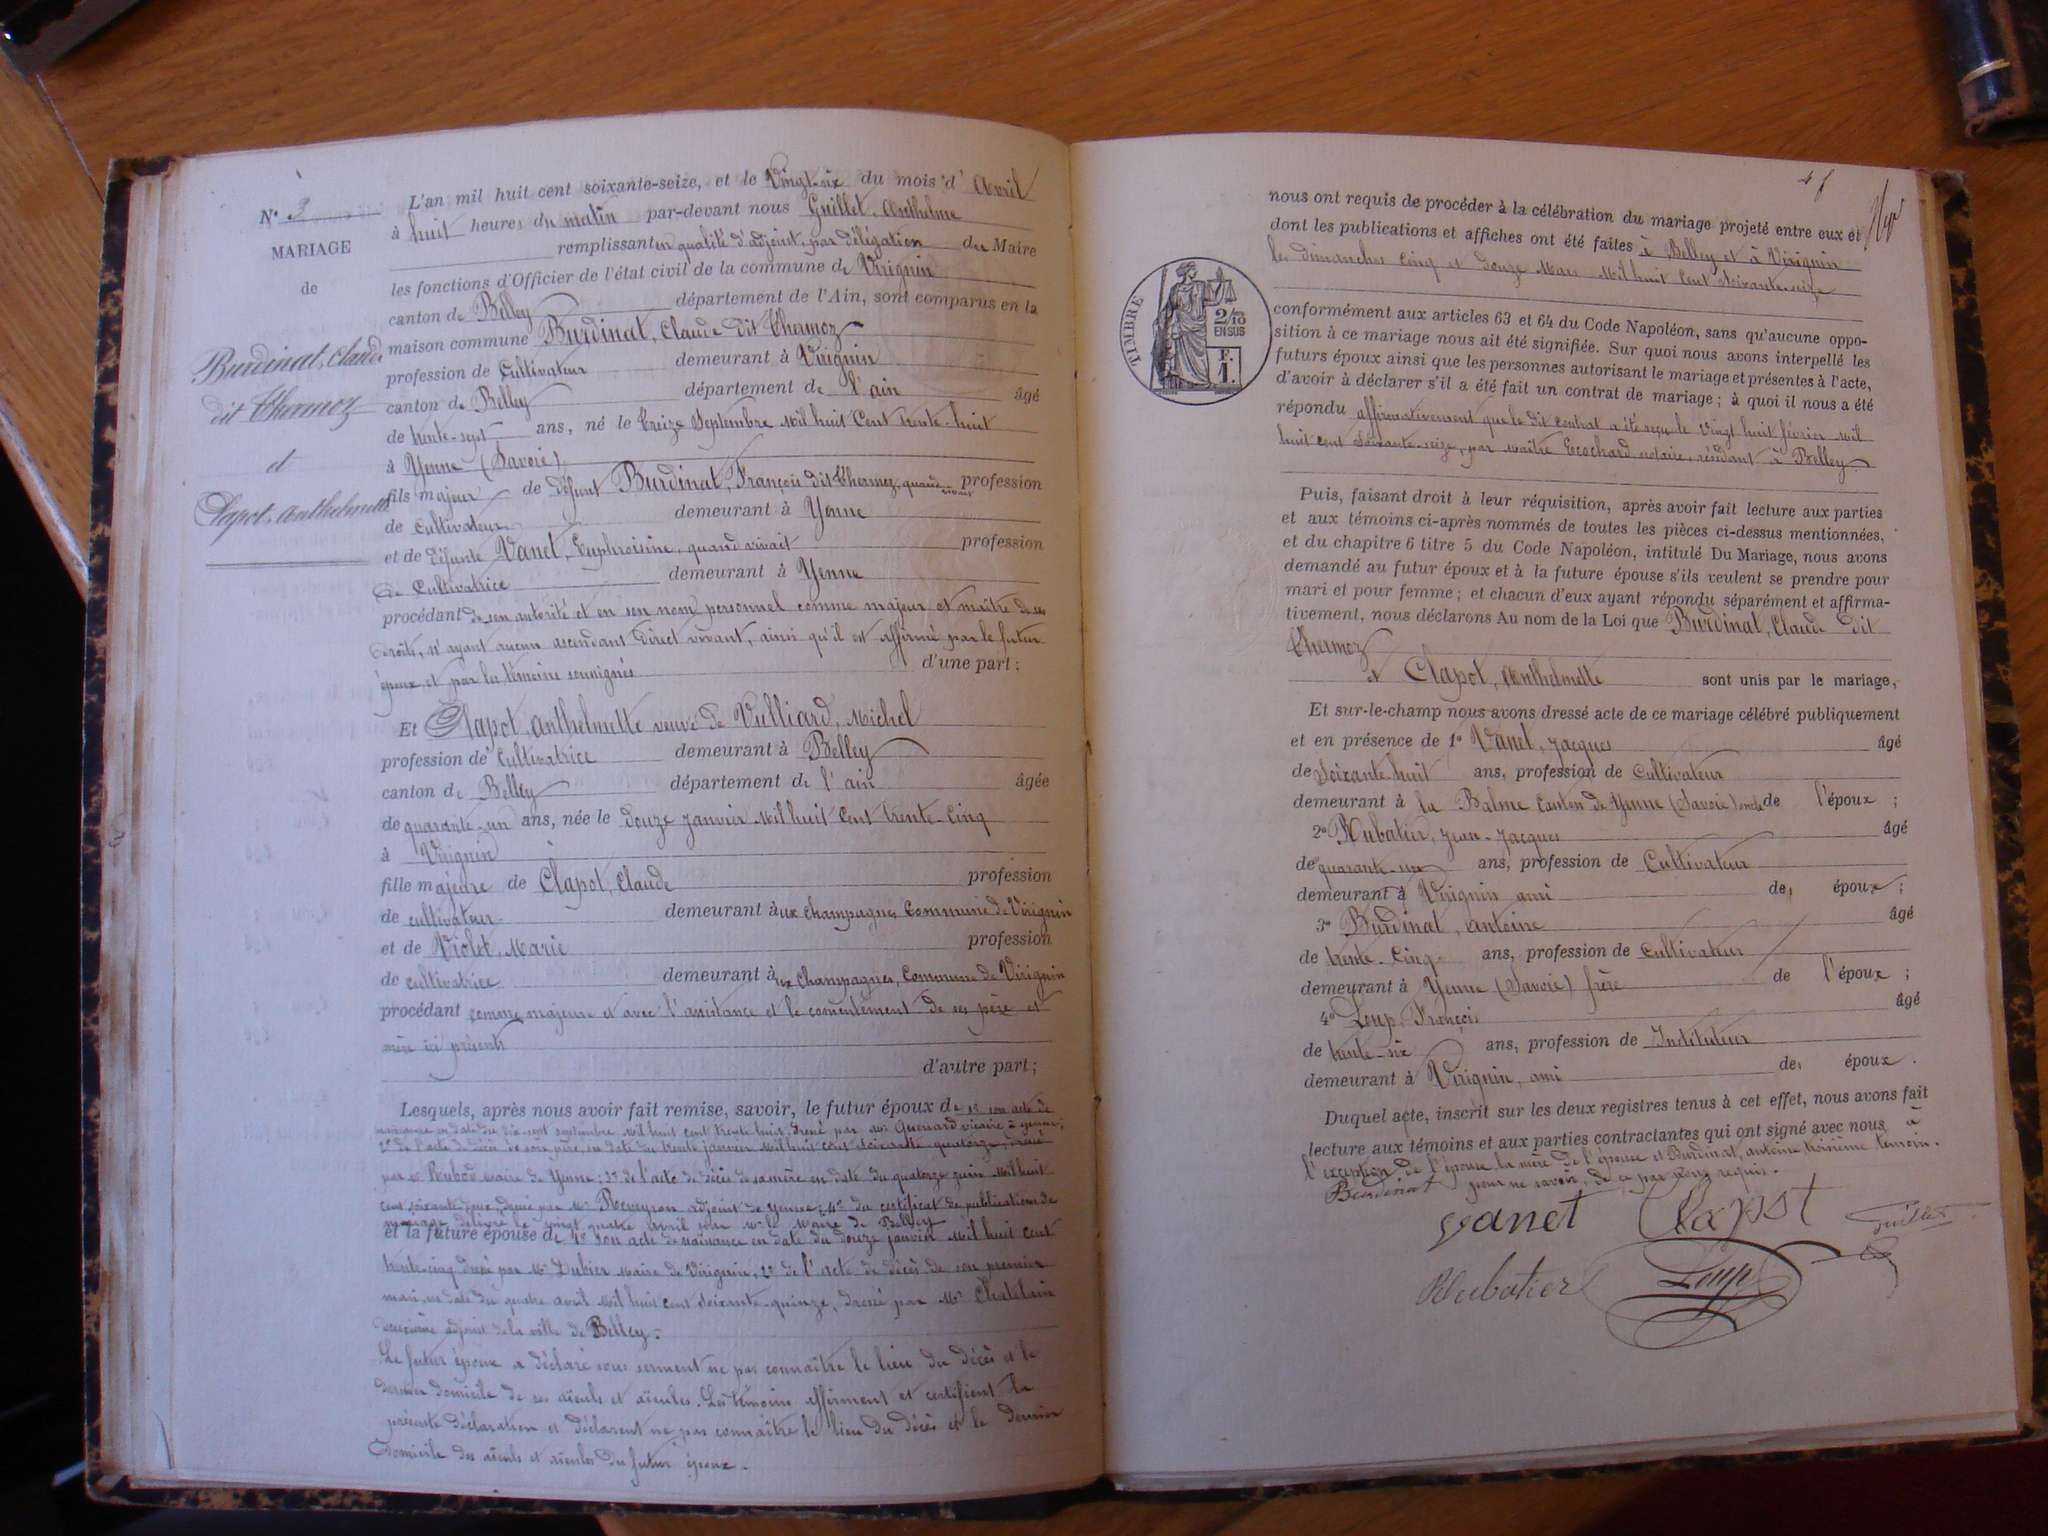 N° 3
MARIAGE
de
Burdinat, Claude
dit Thermoz
et
Clapot, Anthelmette
L'an mil huit cent soixante-seize, et le Vingt-six du mois d' Avril
à huit heures du matin par-devant nous Guillet, Anthelme
remplissant en qualité d'adjoint, par délégation du Maire
les fonctions d'Officier de l'état civil de la commune de Virignin
canton de Belley département de l'Ain, sont comparus en la
maison commune Burdinat, Claude dit Thermoz
profession de Cultivateur demeurant à Virignin
canton de Belley département de l'ain âgé
de trente-sept ans, né le treize Septembre Mil huit Cent trente-huit
à Yenne (Savoie)
fils majeur de défunt Burdinat, François dit Thermoz, quand vivait profession
de Cultivateur demeurant à Yenne
et de défunte Vanet, Euphroisine, quand vivait profession
de Cultivatrice demeurant à Yenne
procédant de son autorité et en son nom personnel comme majeur et maître de ses
droits, n'ayant aucun ascendant direct vivant, ainsi qu'il est affirmé par le futur
époux et par les témoins soussignés d'une part;
Et Clapot, Anthelmette veuve de Vulliard, Michel
profession de Cultivatrice demeurant à Belley
canton de Belley département de l'ain âgée
de quarante-un ans, née le douze janvier Mil huit Cent trente-Cinq
à Virignin
fille majeure de Clapot, Claude profession
de cultivateur demeurant aux Champagnes Commune de Virignin
et de Violet, Marie profession
de cultivatrice demeurant aux Champagnes, Commune de Virignin
procédant comme majeure et avec l'assistance et le consentement de ses père et
mère ici présents
d'autre part;
Lesquels, après nous avoir fait remise, savoir, le futur époux de 1° son acte de
naissance en date du dix-sept septembre Mil huit cent trente huit, dressé par Mr Quenard vicaire à Yenne;
2° de l'acte de décès de son père, en date du trente janvier Mil huit cent soixante quatorze, dressé
par Mr Rubod maire de Yenne; 3° de l'acte de décès de sa mère en date du quatorze juin Mil huit
cent soixante deux, dressé par Mr Reveyron adjoint de Yenne; 4° du certificat de publications de
mariage délivré le vingt quatre avril par Mr le Maire de Belley
et la future épouse de 1° son acte de naissance en date du douze janvier Mil huit cent
trente-cinq dressé par Mr Dubier Maire de Virignin, 2° de l'acte de décès de son premier
mari, en date du quatre avril Mil huit cent soixante-quinze, dressé par Mr Chatelain
deuxième adjoint de la ville de Belley.
Le futur époux a déclaré sous serment ne pas connaître le lieu du décès et le
dernier domicile de ses aïeuls et aïeules. Les témoins affirment et certifient la
présente déclaration et déclarent ne pas connaître le lieu du décès et le dernier
Domicile des aïeuls et aïeules du futur époux.
nous ont requis de procéder à la célébration du mariage projeté entre eux et
dont les publications et affiches ont été faites à Belley et à Virignin
les dimanches Cinq et douze Mars Mil huit Cent Soixante-seize
TIMBRE
2/10
EN SUS
F.
1.
conformément aux articles 63 et 64 du Code Napoléon, sans qu'aucune oppo-
sition à ce mariage nous ait été signifiée. Sur quoi nous avons interpellé les
futurs époux ainsi que les personnes autorisant le mariage et présentes à l'acte,
d'avoir à déclarer s'il a été fait un contrat de mariage; à quoi il nous a été
répondu affirmativement que le dit contrat a été reçu le Vingt huit février Mil
huit cent Soixante-seize, par Maître Ecochard notaire, résidant à Belley.
Puis, faisant droit à leur réquisition, après avoir fait lecture aux parties
et aux témoins ci-après nommés de toutes les pièces ci-dessus mentionnées,
et du chapitre 6 titre 5 du Code Napoléon, intitulé Du Mariage, nous avons
demandé au futur époux et à la future épouse s'ils veulent se prendre pour
mari et pour femme; et chacun d'eux ayant répondu séparément et affirma-
tivement, nous déclarons Au nom de la Loi que Burdinat, Claude dit
Thermoz
et Clapot, Anthelmette sont unis par le mariage,
Et sur-le-champ nous avons dressé acte de ce mariage célébré publiquement
et en présence de 1° Vanet, Jacques âgé
de Soixante huit ans, profession de Cultivateur
demeurant à la Balme Canton de Yenne (Savoie) oncle de l'époux;
2° Rubatier, Jean-Jacques âgé
de quarante-un ans, profession de Cultivateur
demeurant à Virignin ami des époux;
3° Burdinat, Antoine âgé
de trente-Cinq ans, profession de Cultivateur
demeurant à Yenne (Savoie) frère de l'époux;
4° Loup, François âgé
de trente-six ans, profession de Instituteur
demeurant à Virignin, ami des époux.
Duquel acte, inscrit sur les deux registres tenus à cet effet, nous avons fait
lecture aux témoins et aux parties contractantes qui ont signé avec nous à
l'exception de l'épouse la mère de l'épouse et Burdinat, Antoine troisième témoin.
pour ne savoir, de ce par nous requis.
Burdinat
Vanet Clapot Guillet
Rubatier Loup